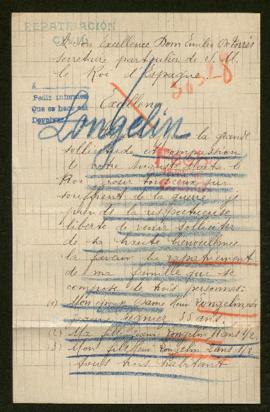 REPATRIACIÓN
CIVIL
A Son Excellence Dom Emilio de Torrès
Secrétaire particulier de S. M.
le Roi d'Espagne.
30528
A
Pedir informes
Que se hace así
Devolver
Longelin
la grande
sollicitude et compassion
de votre Auguste
le
Roi pour tous ceux qui
souffrent de la guerre, je
prends la respectueuse
liberté de venir solliciter
de sa haute bienveillance
la faveur du rapatriement
de ma famille qui se
compose de trois personnes:
(1) Mon épouse Dame Louis Longelin née
35 ans.
(2) Ma fille Longelin 11 ans 1/2
(3) Mon fils Longelin 2 ans 1/2
tous trois habitant